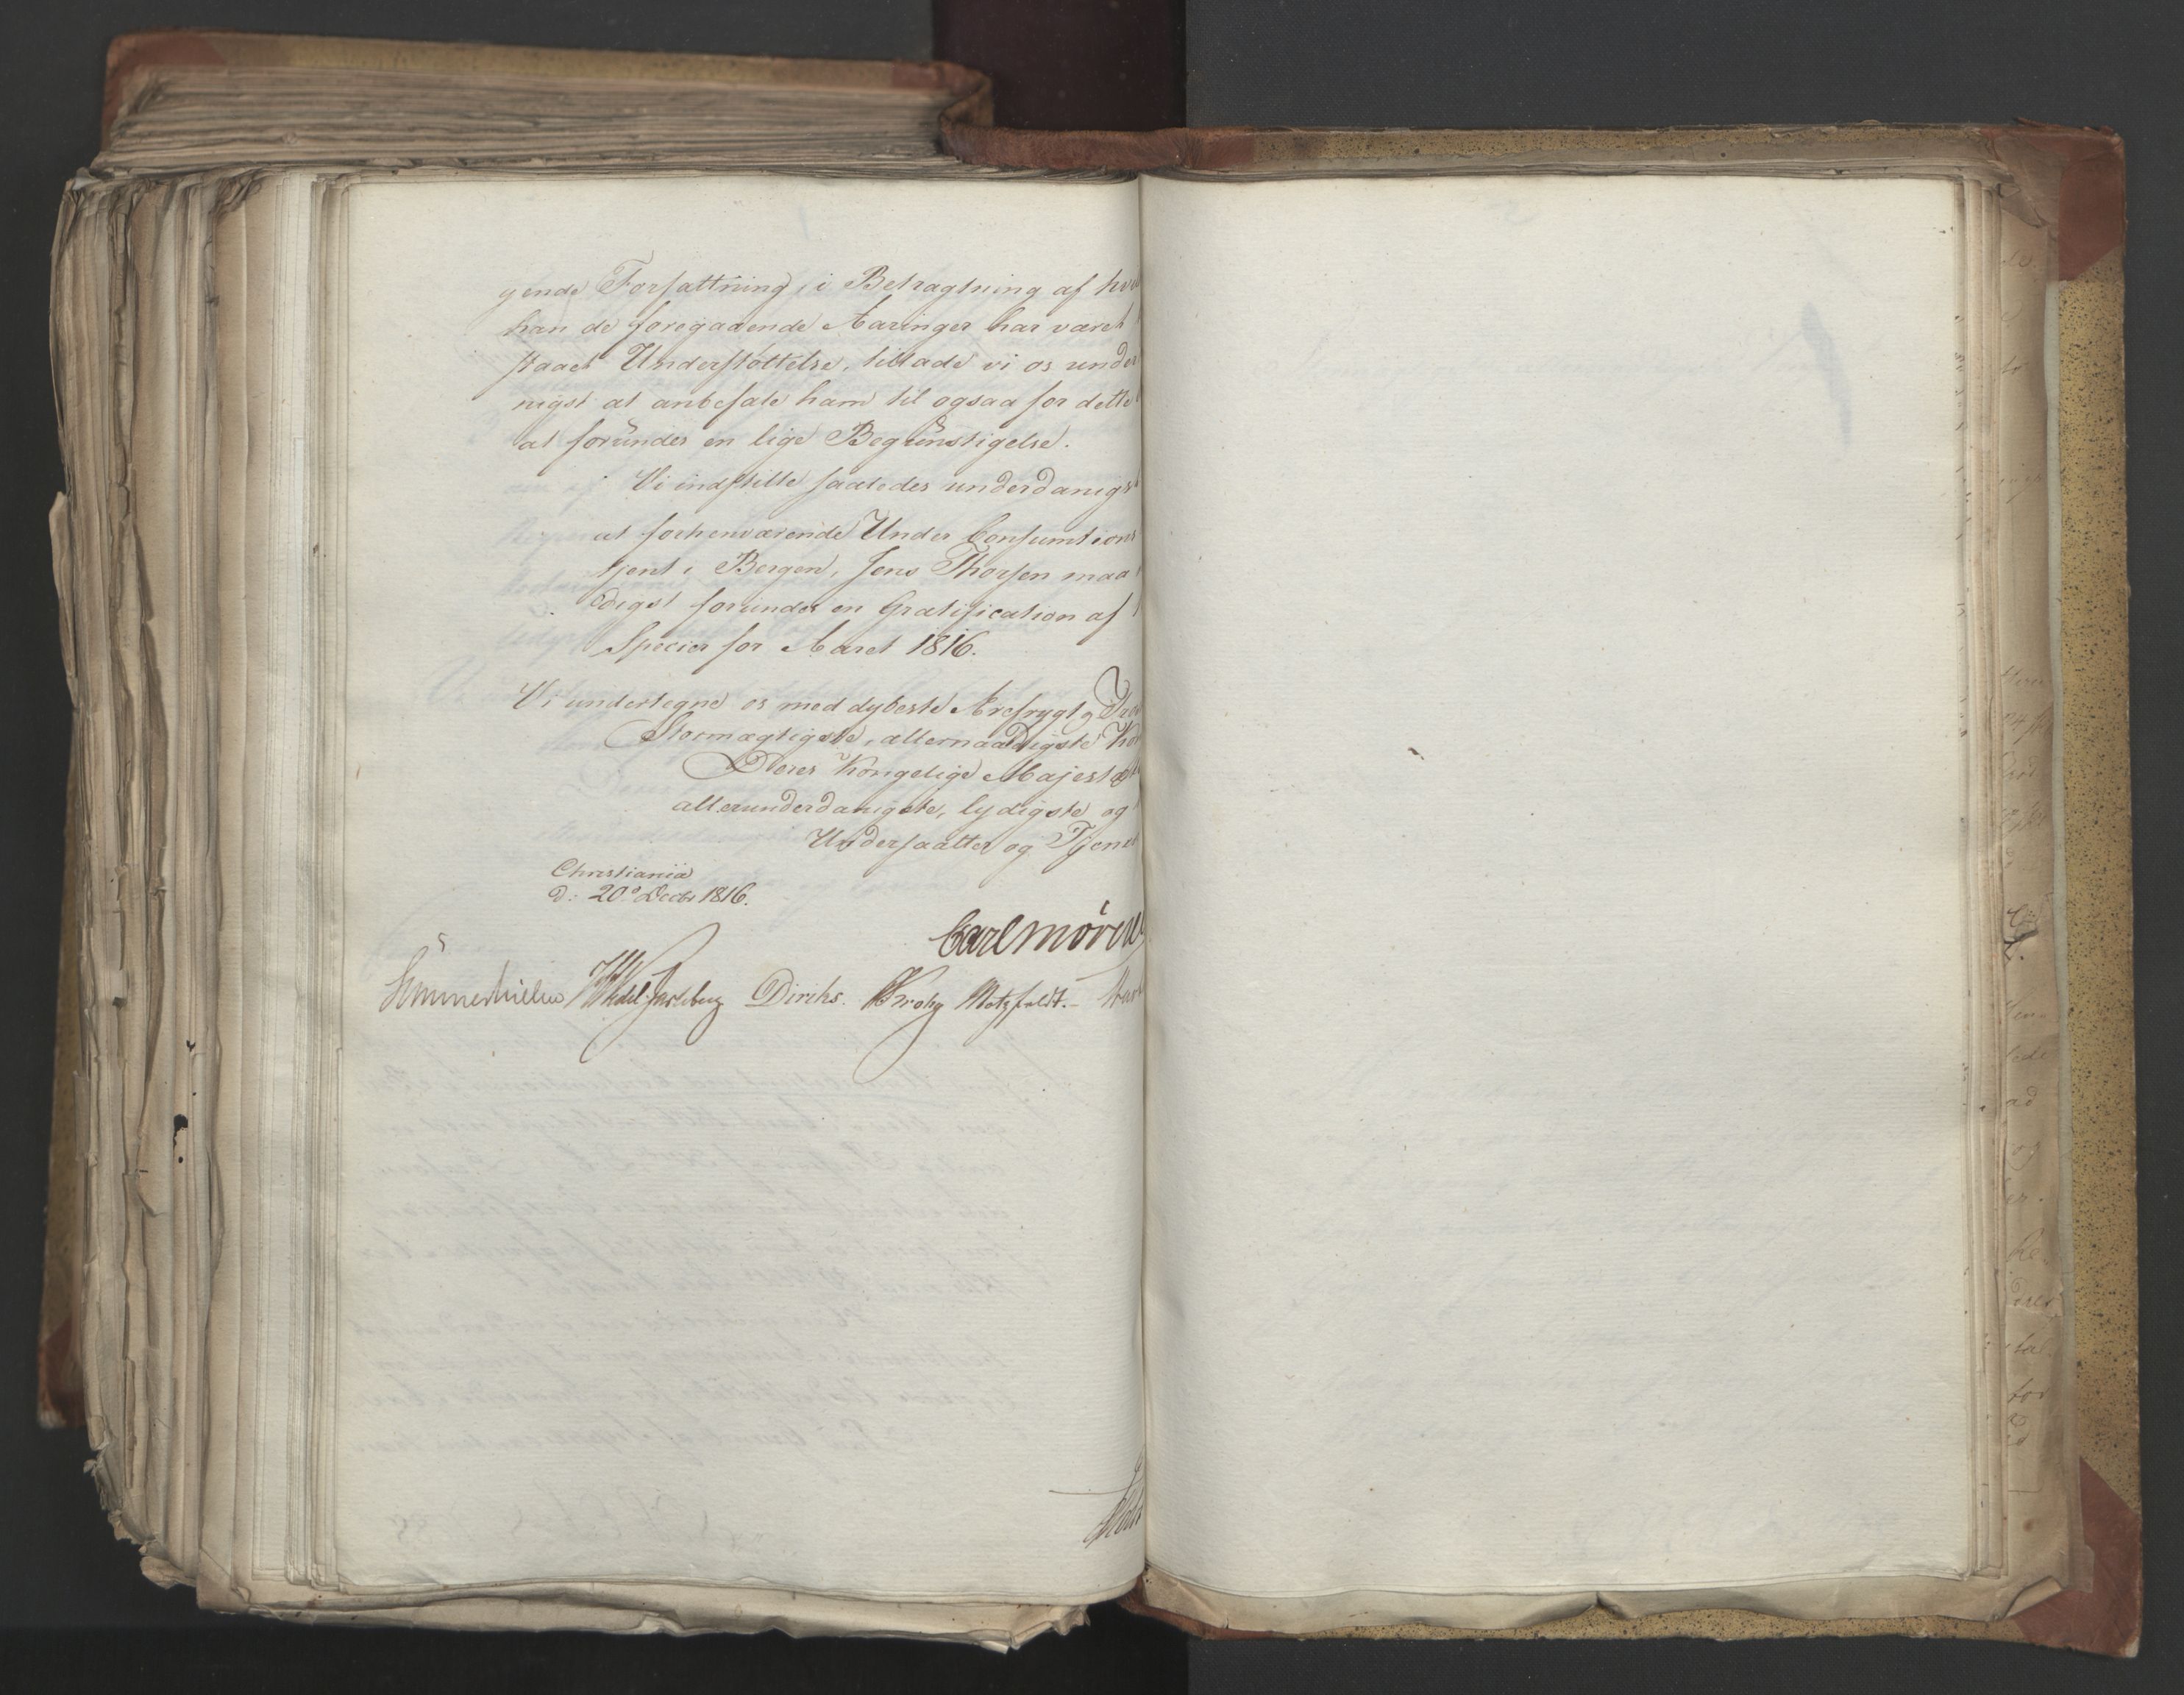 gende Forfattning, i Betragtning af hvad
han de foregaaende Aaringer har været
staaet Understøttelse, tillade vi os under
nigst at anbefale ham til ogsaa for dette
at forundes en lige Begunstigelse.
Vi indstille saaledes underdanigst
at forhenværende Under Consumtions
tjent i Bergen, Jens Thorsen maa
digst forundes en Gratification af
Species for Aaret 1816.
Vi undertegne os med dybeste Ærefrygt,
Stormægtigste, allernaadigste
Deres Kongelige Majestæt
allerunderdanigste, lydigste og
Undersaatter og Tjene
Christiania
d: 20de Decbr 1816.
Carl Mörner
Sommerhielm Wedel-Jarlsberg Diriks. Krohg Motzfeldt.